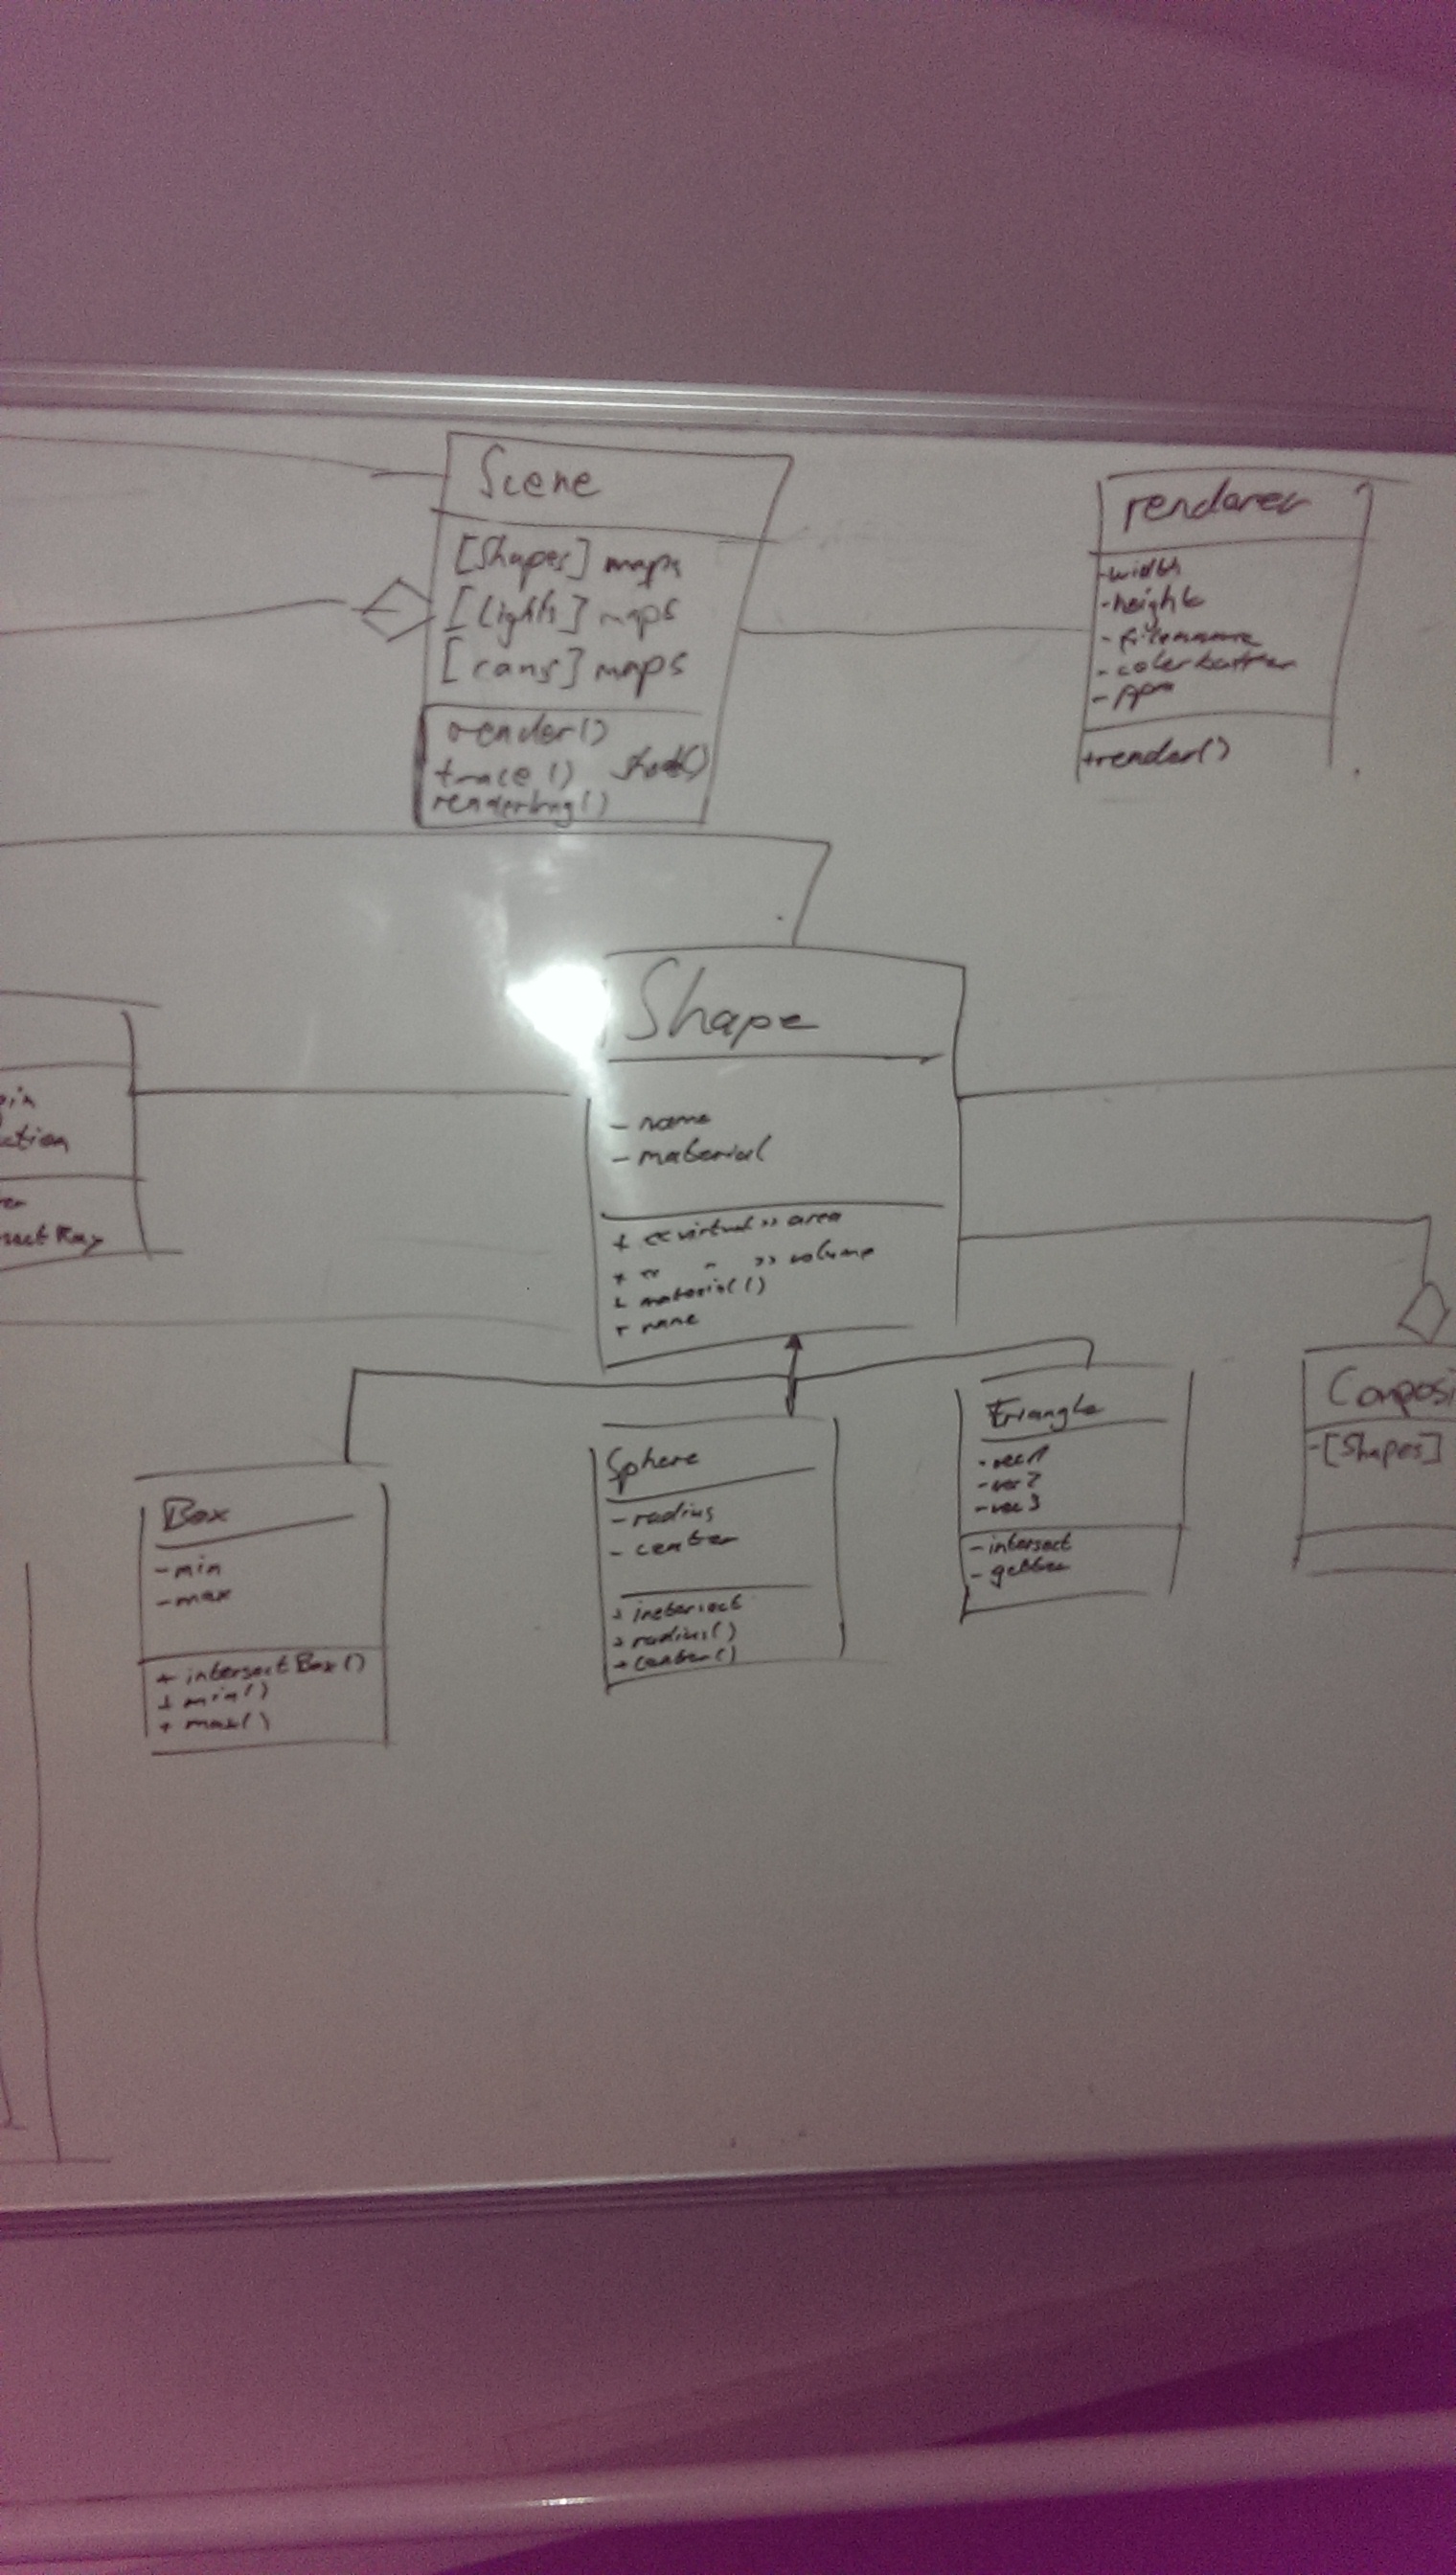 Scene
[Shapes] maps
[Lights] maps
[cams] maps
render()
trace() 
renderer
-width
-height
-filename
-colorbuffer
-ppm
+render()
Shape
- name
- material
+ <<virtual>> area
+ << " >> volume
+ material()
+ name
ction
Box
-min
-max
+ intersectBox()
+ min()
+ max()
Sphere
-radius
- center
+ intersect
+ radius()
+ center()
Triangle
-vec1
-vec2
-vec3
-intersect
- getter
Composi
-[Shapes]